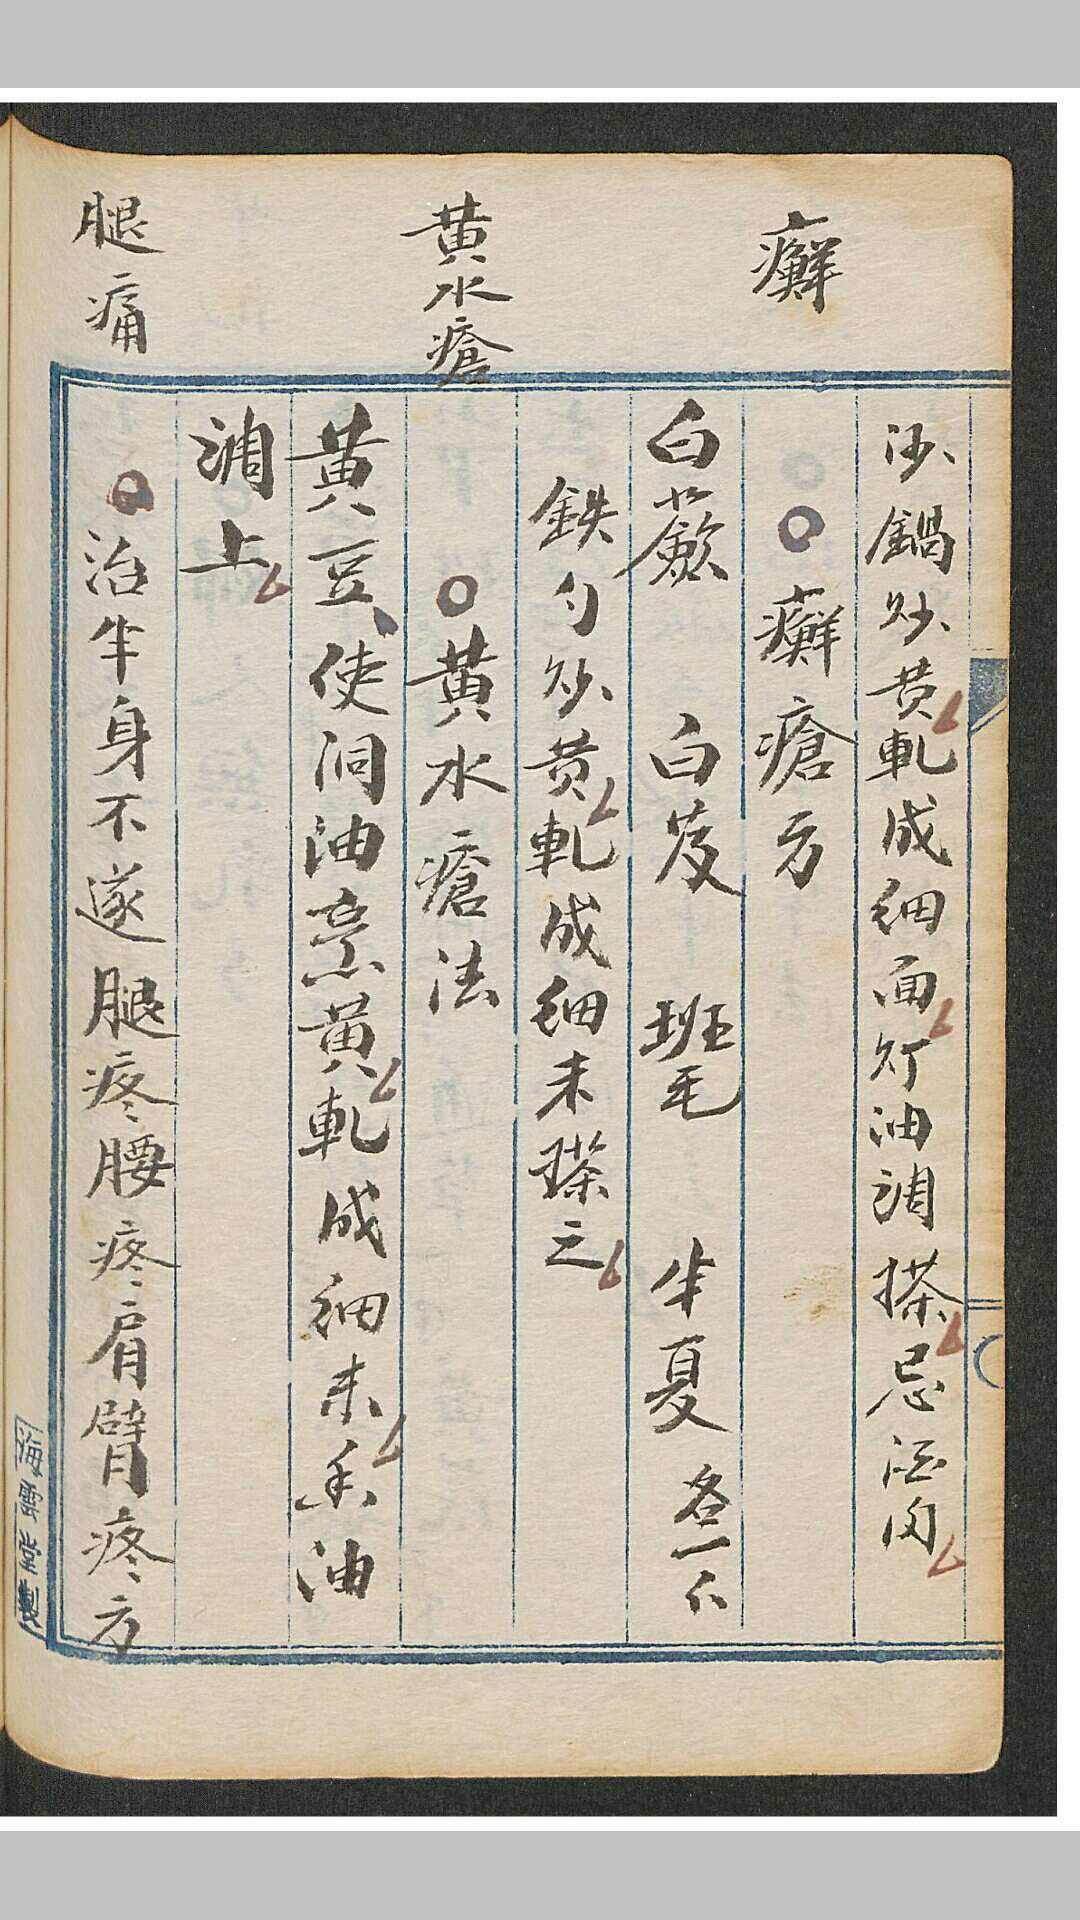 癬
黄水瘡
腿痛
沙鍋炒黄軋成細面灯油調搽忌酒肉
癬瘡方
白蔹 白芨 班毛 半夏 各一个
鉄勺炒黄軋成細末搽之
黄水瘡法
黄豆使洞油熬黄軋成細末香油
調上
治半身不遂腿疼腰疼肩臂疼方
海雲堂製